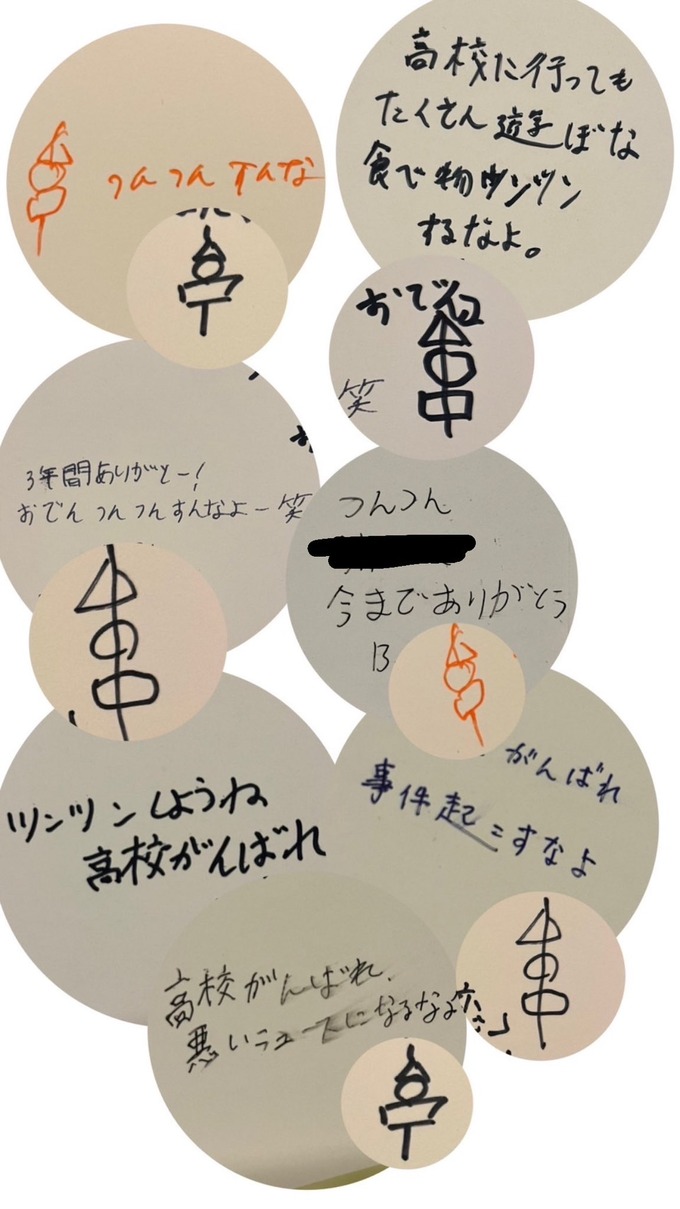 つんつんすんな
高校に行っても
たくさん遊ぼな
食で物ツンツン
するなよ。
おでん
笑
3年間ありがとー!
おでんつんつんすんなよー笑
つんつん
今までありがとう
ツンツンしようね
高校がんばれ
がんばれ
事件起こすなよ
高校がんばれ、
悪いニュースになるなよ